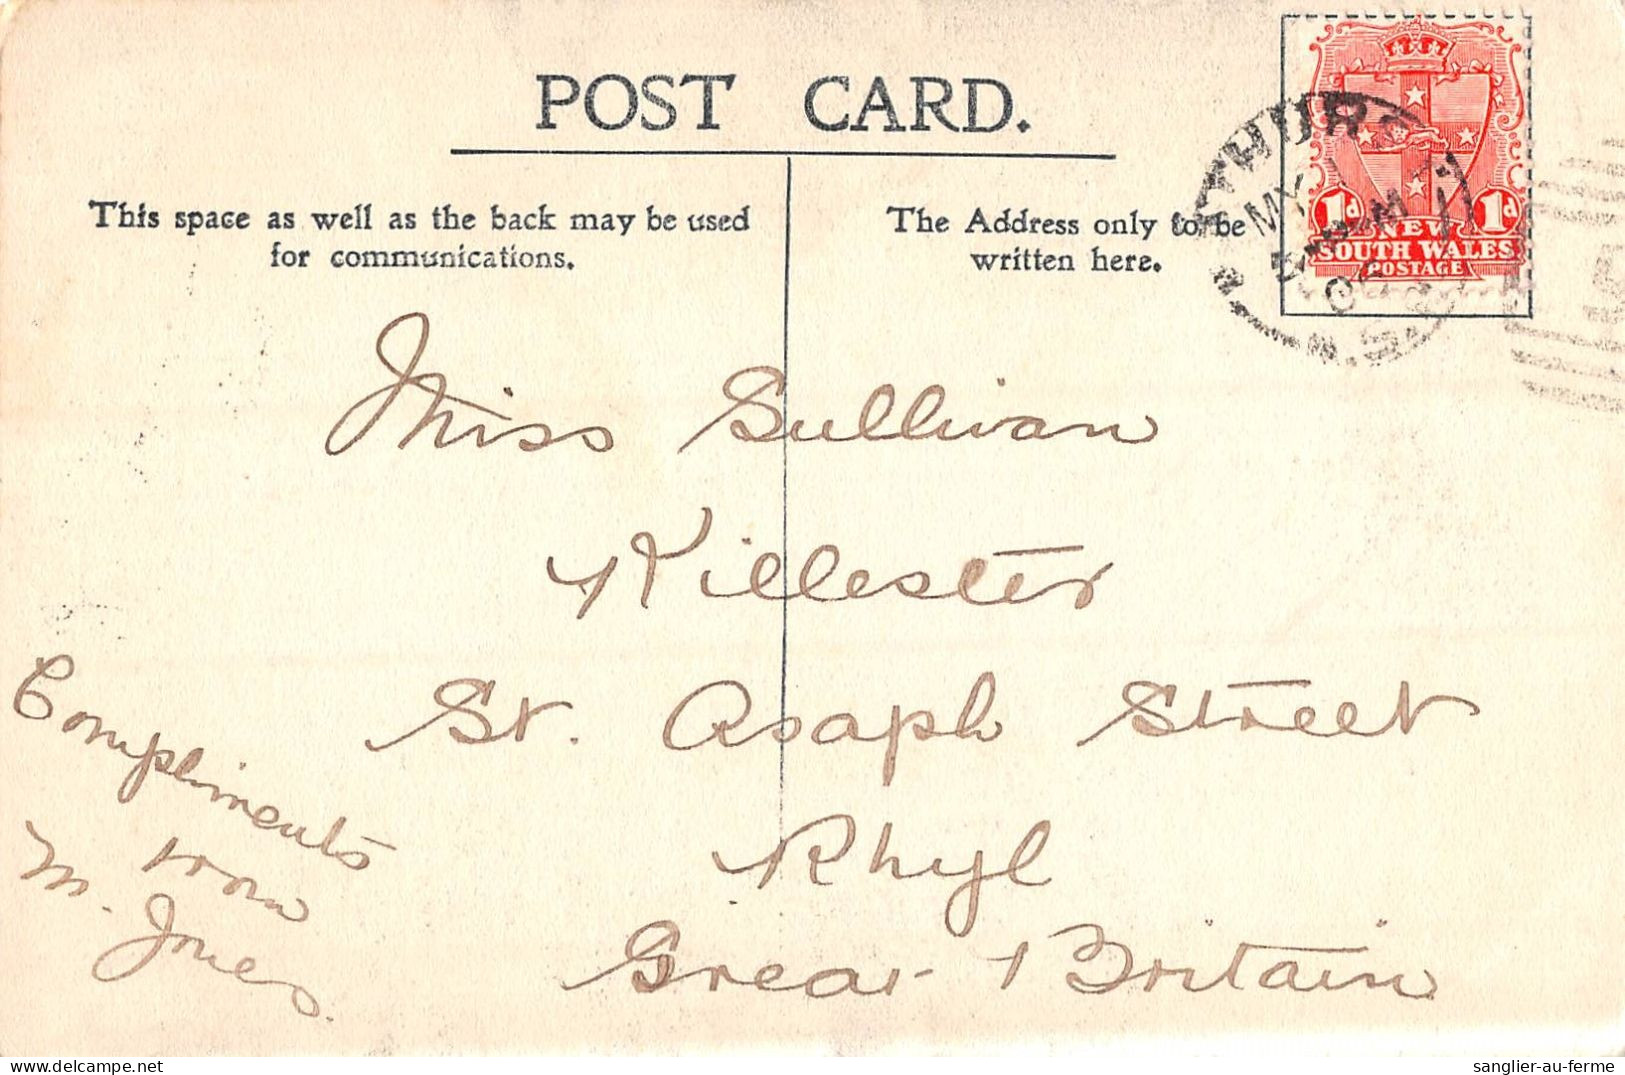 POST CARD.
This space as well as the back may be used
for communications.
The Address only to be
written here.
1d 1d
NEW
SOUTH WALES
POSTAGE
MY
Miss Sullivan
Killester
St. Asaph Street
Rhyl
Great Britain
Compliments
from
M. Jones.
sanglier-au-ferme